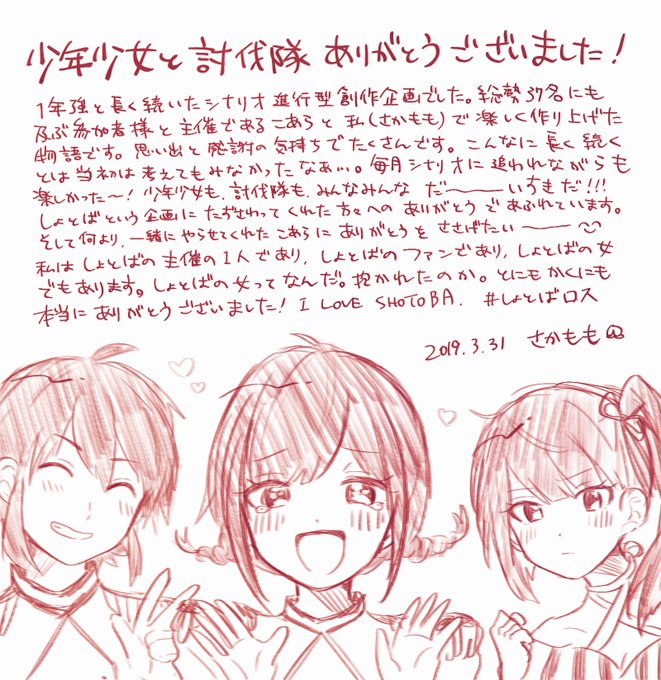 少年少女と討伐隊 ありがとうございました！
1年強と長く続いたシナリオ進行型創作企画でした。総勢37名にも
及ぶ参加者様と主催であるこあろと私(さかもも)で楽しく作り上げた
物語です。思い出と感謝の気持ちでたくさんです。こんなに長く続く
とは当初は考えてもみなかったなあ…。毎月シナリオに追われながらも
楽しかった〜！少年少女も、討伐隊も、みんなみんな だ――いすきだ!!!
しょとばという企画にたずさわってくれた方々への ありがとうであふれています。
そして何より、一緒にやらせてくれた こあろに ありがとうを ささげたい――
私は しょとばの主催の1人であり、しょとばのファンであり、しょとばの女
でもあります。しょとばの女ってなんだ。抱かれたのか。とにもかくにも
本当に ありがとうございました！ I LOVE SHOTOBA. #しょとばロス
2019.3.31 さかもも